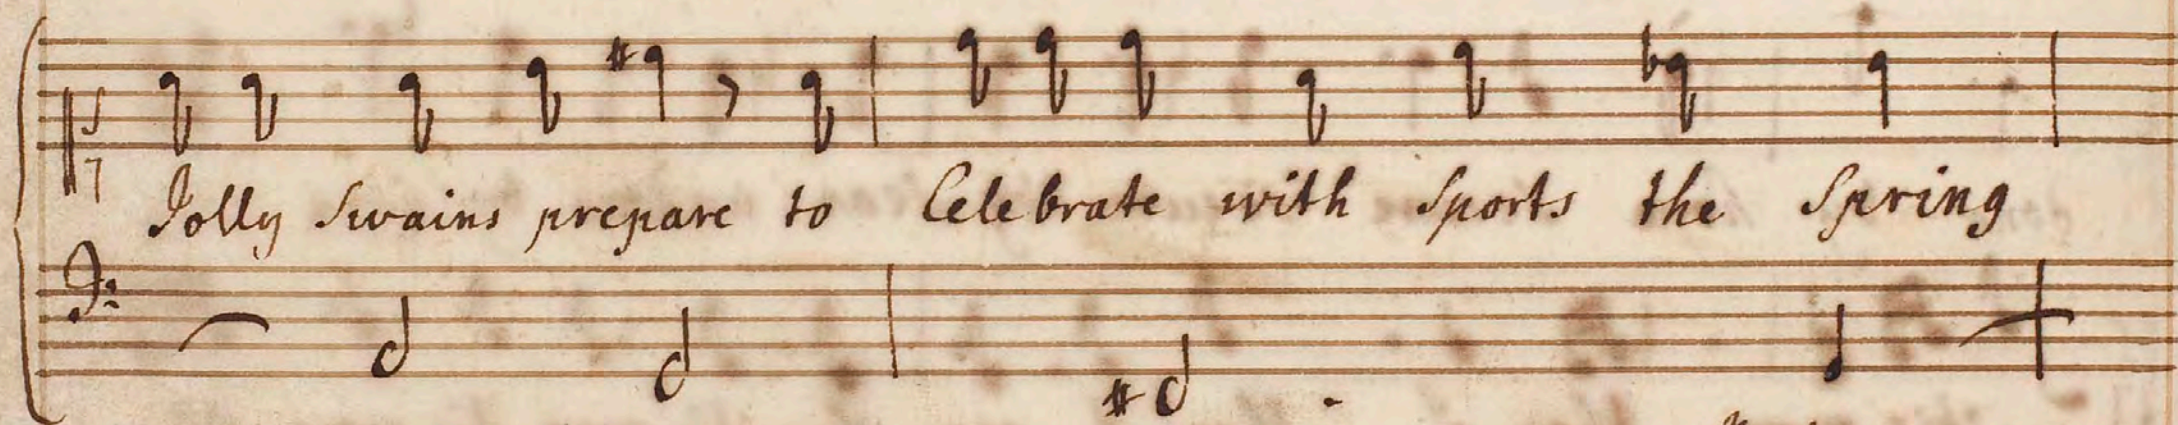 Jolly Swains prepare to Celebrate with Sports the Spring